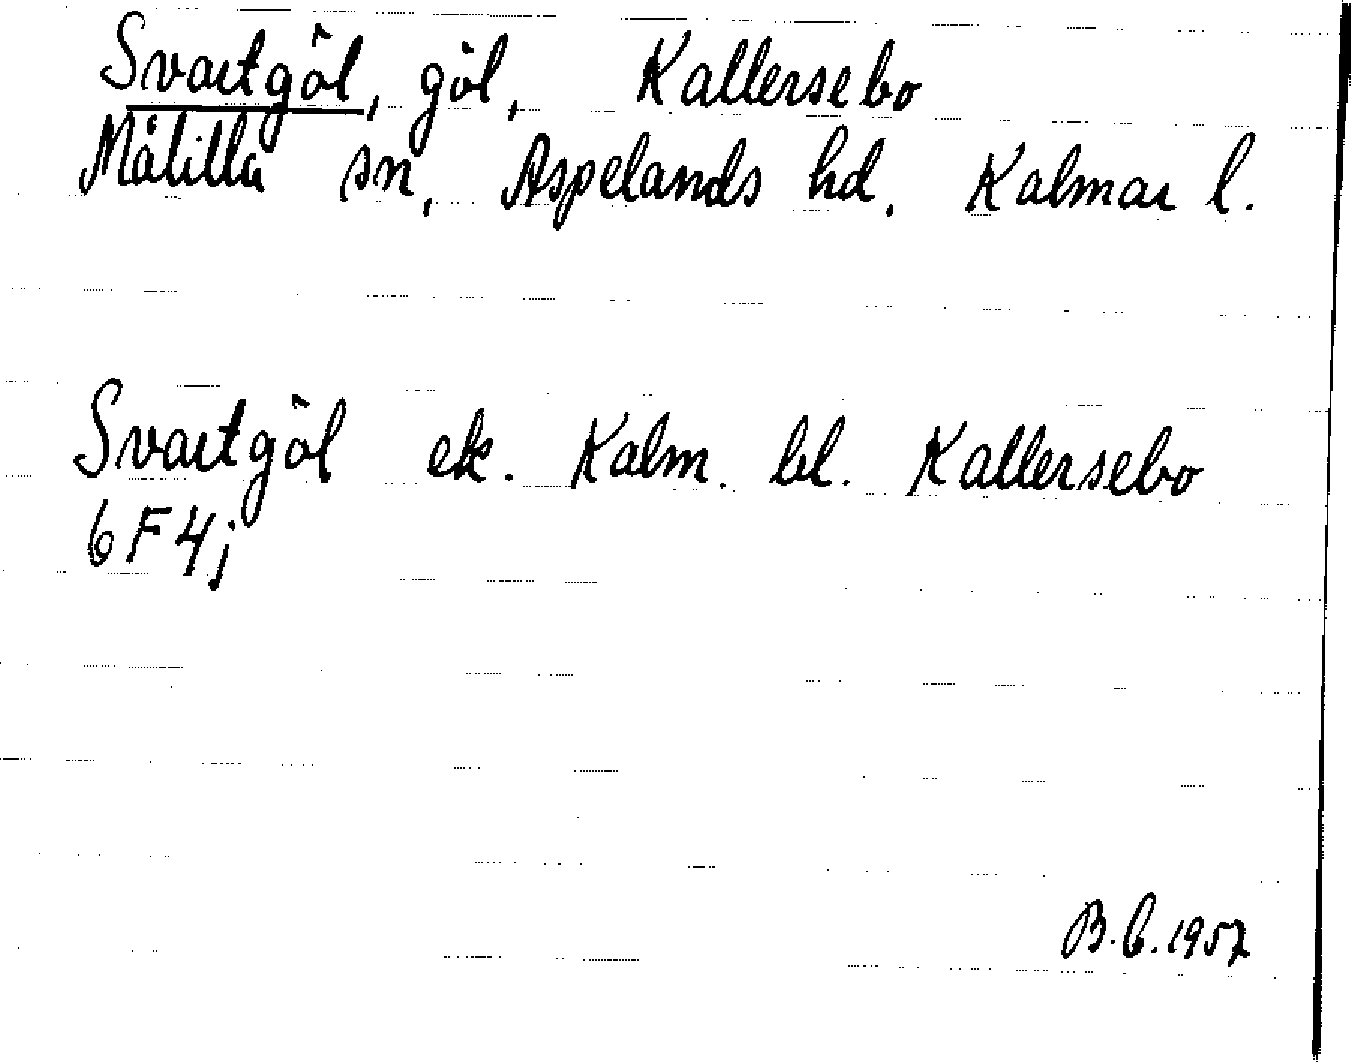 Svartgöl, göl, Kallersebo
Målilla sn, Aspelands hd, Kalmar l.
Svartgöl ek. Kalm. bl. Kallersebo
6F4j
B.C.1957